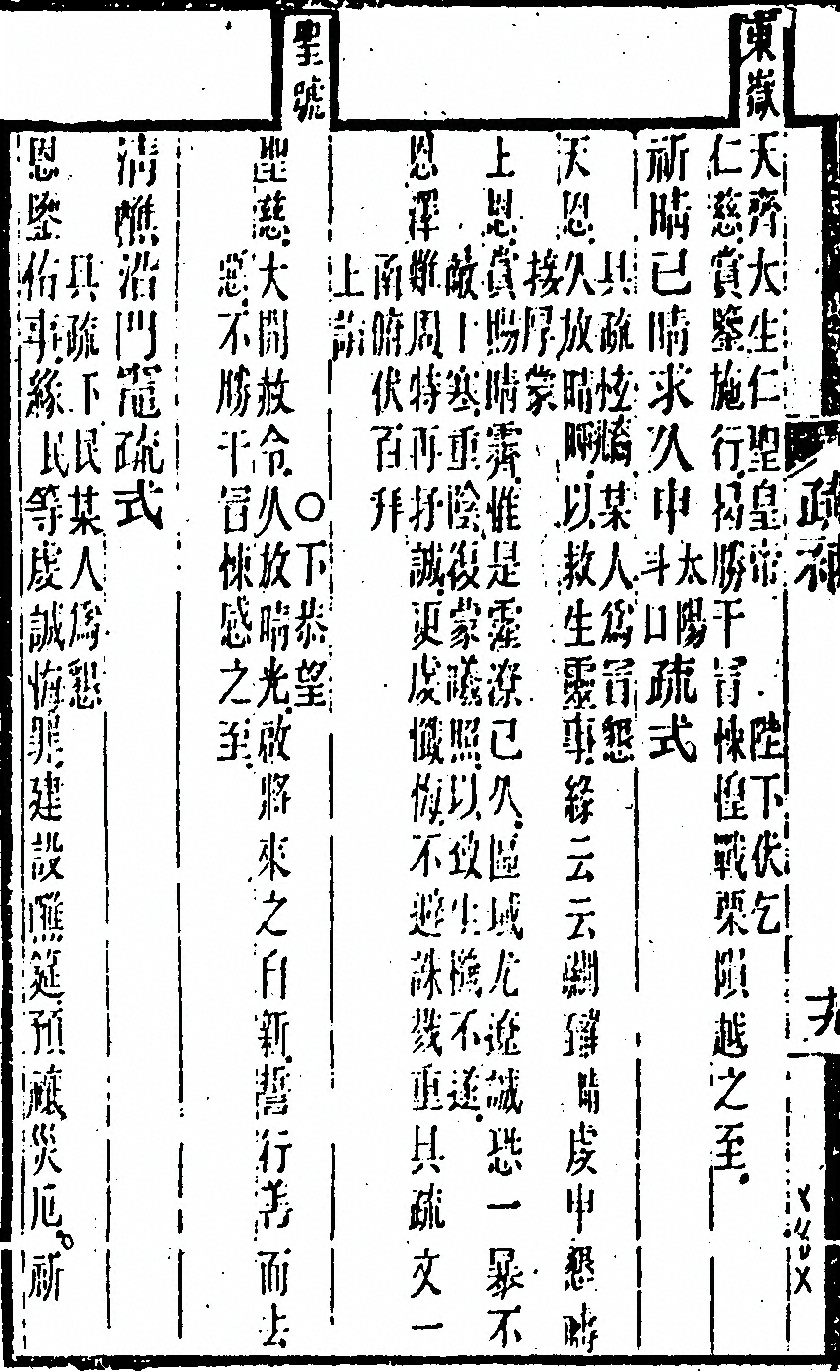 東嶽
聖號
天齊大生仁聖皇帝　陛下伏乞
仁慈賞鑒施行曷勝干冒悚惶戰栗隕越之至
祈晴已晴求久申太陽斗口疏式
具疏怯燐某人為冒懇
天恩久放晴暉以救生靈事緣云云 晴虔申懇禱
接厚蒙
上恩賞賜晴霽惟是霪潦已久區域尤遼誠恐一暴不
敵十寒重陰復蒙曦照以致生機不遂
恩澤難周特再抒誠更虔懺悔不避誅戮重具疏文一
函俯伏百拜
上詣
○下恭望
聖慈大開赦令久放晴光啟將來之自新誓行善而去
惡不勝干冒悚感之至
清醮沿門竈疏式
具疏下民某人為懇
恩鑒佑事緣民等虔誠悔罪建設醮筵預禳災厄祈
疏